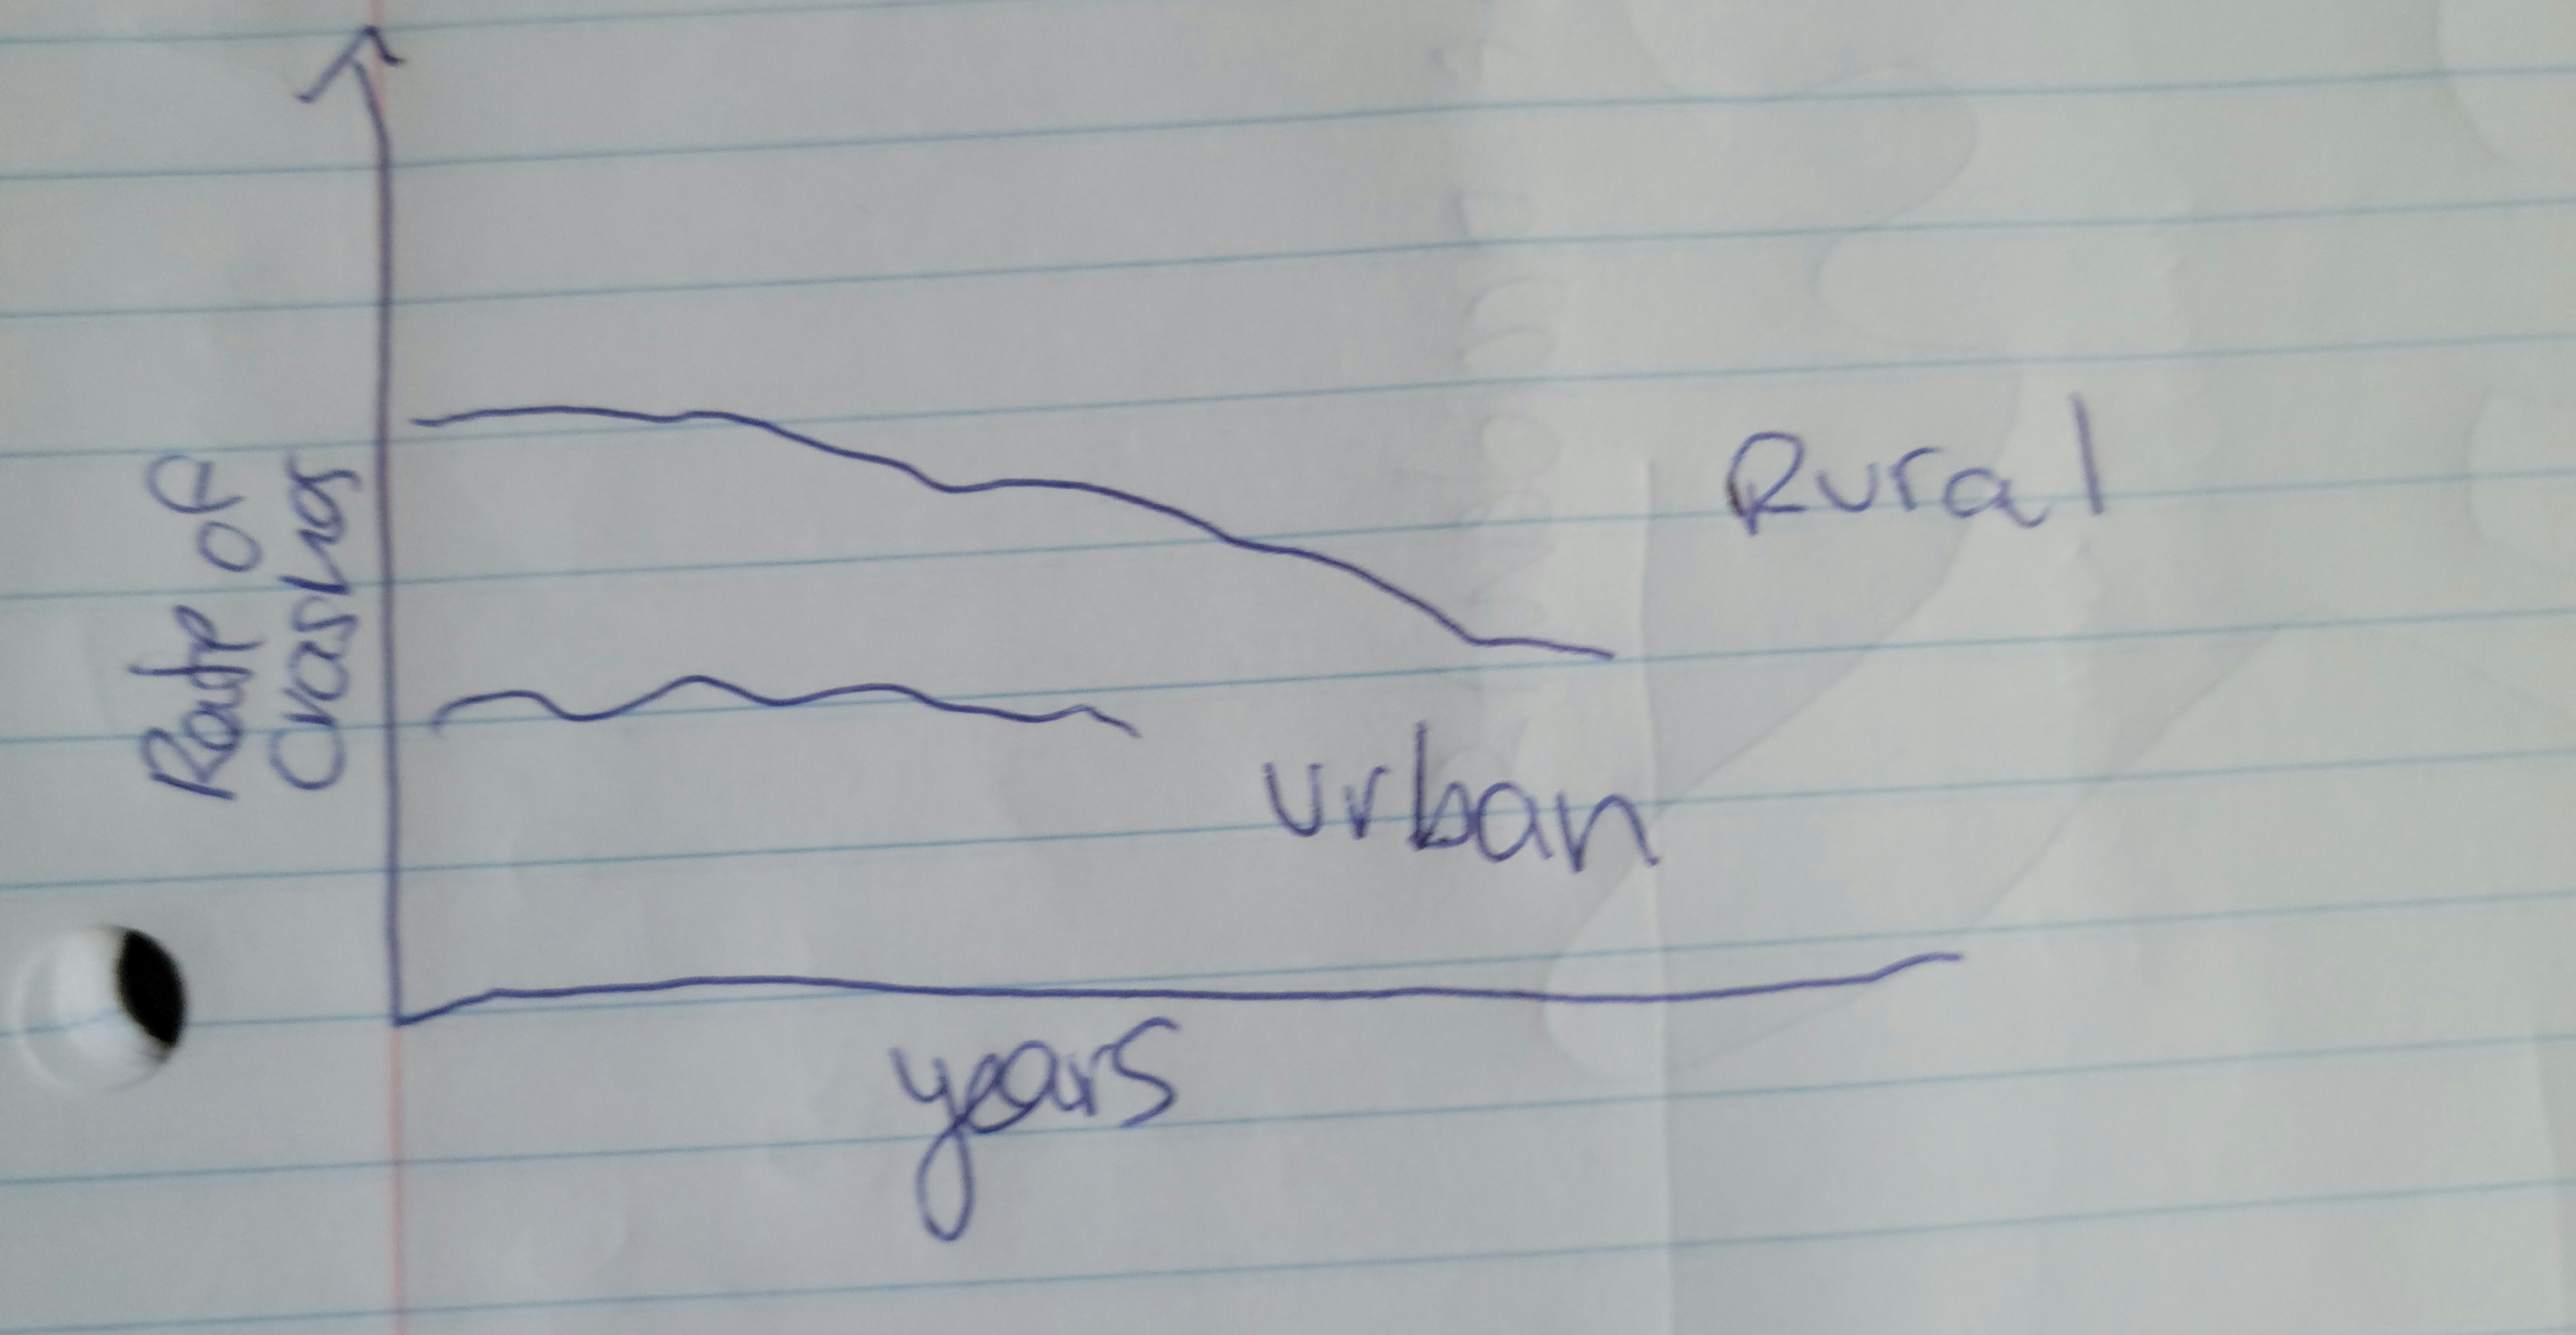 Rate of
Crashes
Rural
urban
years